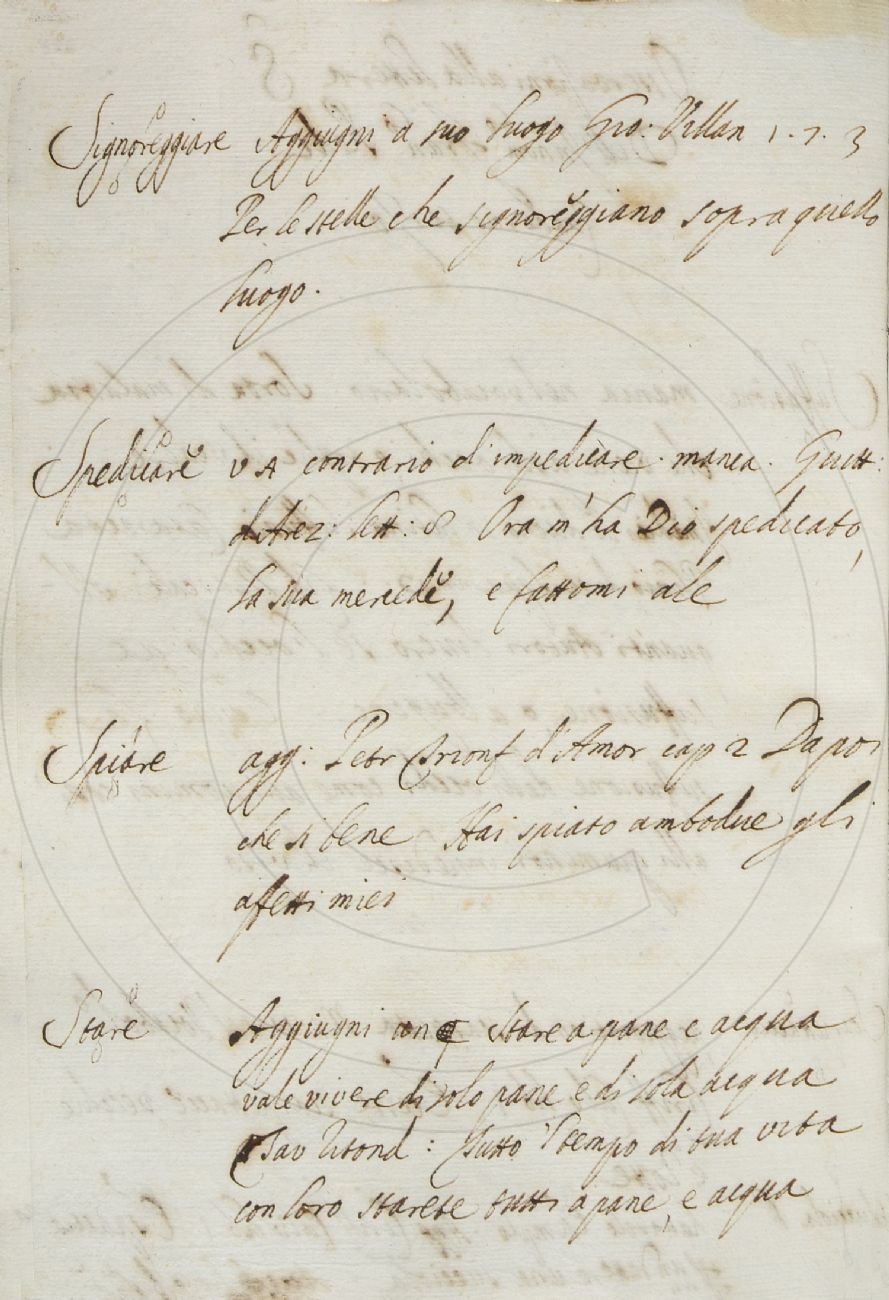 Signoreggiare Aggiugni a suo luogo Gio: Villan 1. 7. 3
Per le stelle che signoreggiano sopra quello
luogo.
Spedicare V A contrario d'impedicare. manca. Guitt:
d'Arez: lett: 8 Ora m'ha Dio spedicato,
la sua mercede, e fattomi ale
Spiare agg: Petr Trionf d'Amor cap 2 Da poi
che sì bene Hai spiato ambodue gli
affetti miei
Stare Aggiugni Stare a pane e acqua
vale vivere di solo pane e di sola acqua
Tav Ritond: Tutto 'l tempo di sua vita
con loro starete tutti a pane, e acqua